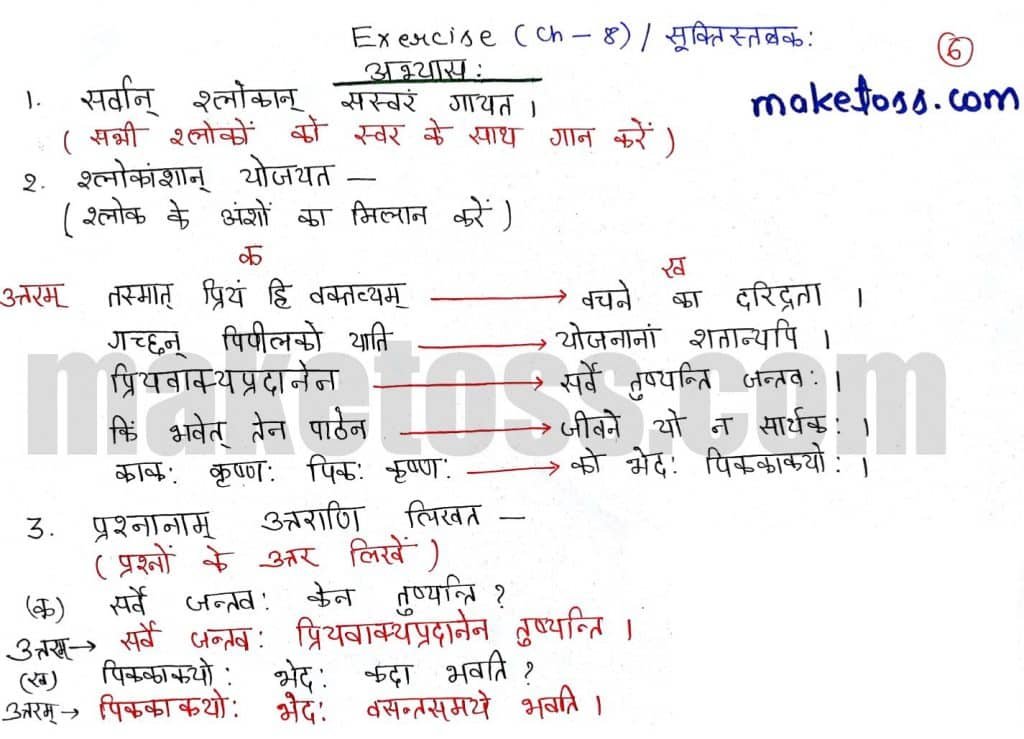 Exercise (Ch - 8) / सूक्तिस्तबक:
6
अभ्यास:
maketoss.com
1. सर्वान् श्लोकान् सस्वरं गायत ।
( सभी श्लोकों को स्वर के साथ गान करें )
2. श्लोकांशान् योजयत —
( श्लोक के अंशों का मिलान करें )
क ख
उत्तरम् तस्मात् प्रियं हि वक्तव्यम् → वचने का दरिद्रता ।
गच्छन् पिपीलको याति → योजनानां शतान्यपि ।
प्रियवाक्यप्रदानेन → सर्वे तुष्यन्ति जन्तव: ।
किं भवेत् तेन पाठेन → जीवने यो न सार्थक: ।
काक: कृष्ण: पिक: कृष्ण: → को भेद: पिककाकयो: ।
maketoss.com
3. प्रश्नानाम् उत्तराणि लिखत —
( प्रश्नों के उत्तर लिखें )
(क) सर्वे जन्तव: केन तुष्यन्ति ?
उत्तरम् → सर्वे जन्तव: प्रियवाक्यप्रदानेन तुष्यन्ति ।
(ख) पिककाकयो: भेद: कदा भवति ?
उत्तरम् → पिककाकयो: भेद: वसन्तसमये भवति ।